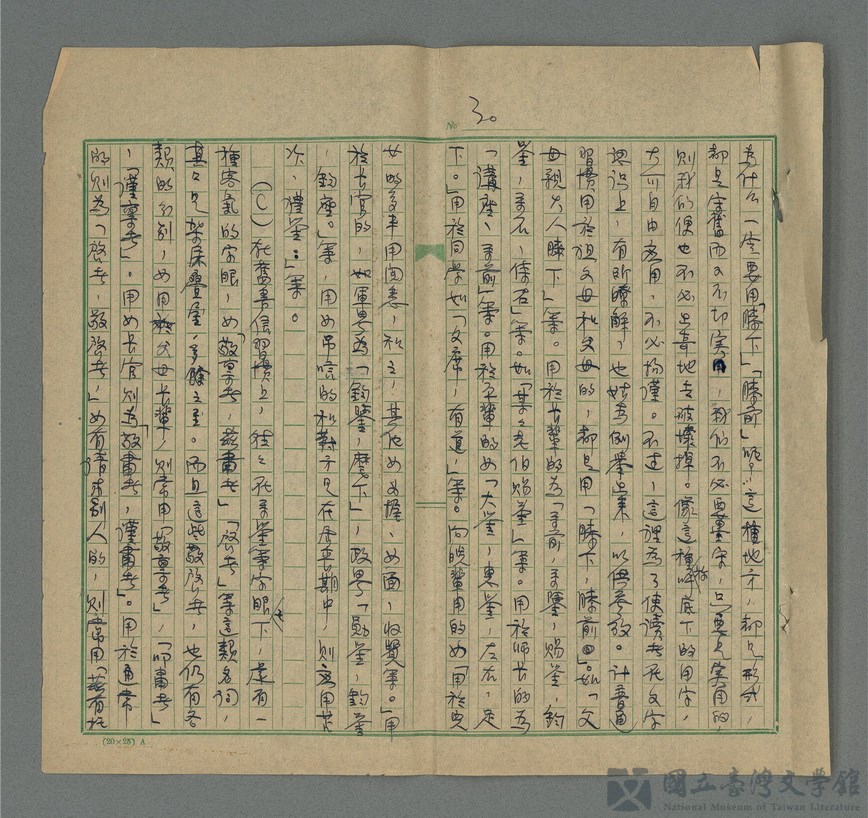 No 30
為什么一定要用「膝下」「膝前」呢？這種地方，都是形式，
都是守舊而又不切實用，我们不必要墨守，只要是實用的，
則我们便也不必上意地去破壞掉。像這種呼底下的用字，
大可自由应用，不必拘谨。不过，這裡為了使讀者在文字
認识上，有所瞭解，也姑為例舉出來，以供參放。計普通
習慣用於祖父母和父母的，都是用「膝下，膝前」。如「父
母親大人膝下」等。用於長輩的為「尊前，尊鑒，賜鑒，鈞
鑒，尊右，侍右」等。如「某々老伯賜鑒」等。用於师长的為
「講座，尊前」等。用於平輩的如「大鑒，惠鑒，左右，足
下。」用於同學如「文席，有道，」等。向晚輩用的如「用於兒
女的多半用知悉，和之，其他如如握，如面，收覽等。」用
於长官的，如軍界為「鈞鑒，麾下」，政界「勛鑒，鈞鑒
，鈞座。」等，用如吊唁的和對方是在居喪期中，則应用苫
次，禮鑒：」等。
（C）在舊書信習慣上，往々在尊鑒等字眼下，还有一
種客氣的字眼，如「敬禀者，兹肅者」「啟者」等這類名词，
其々是架床疊屋，多餘之至。而且這些敬啟者，也仍有各
類的分别，如用於父母长輩，則常用「敬禀者」，「叩肅者」
，「謹禀者」。用如长官則為「敬肅者，謹肅者」。用於通常
的則為「啟者，敬啟者，」如有請求别人的，則常用「兹有托
(20×25) A
國立臺灣文學館
National Museum of Taiwan Literature